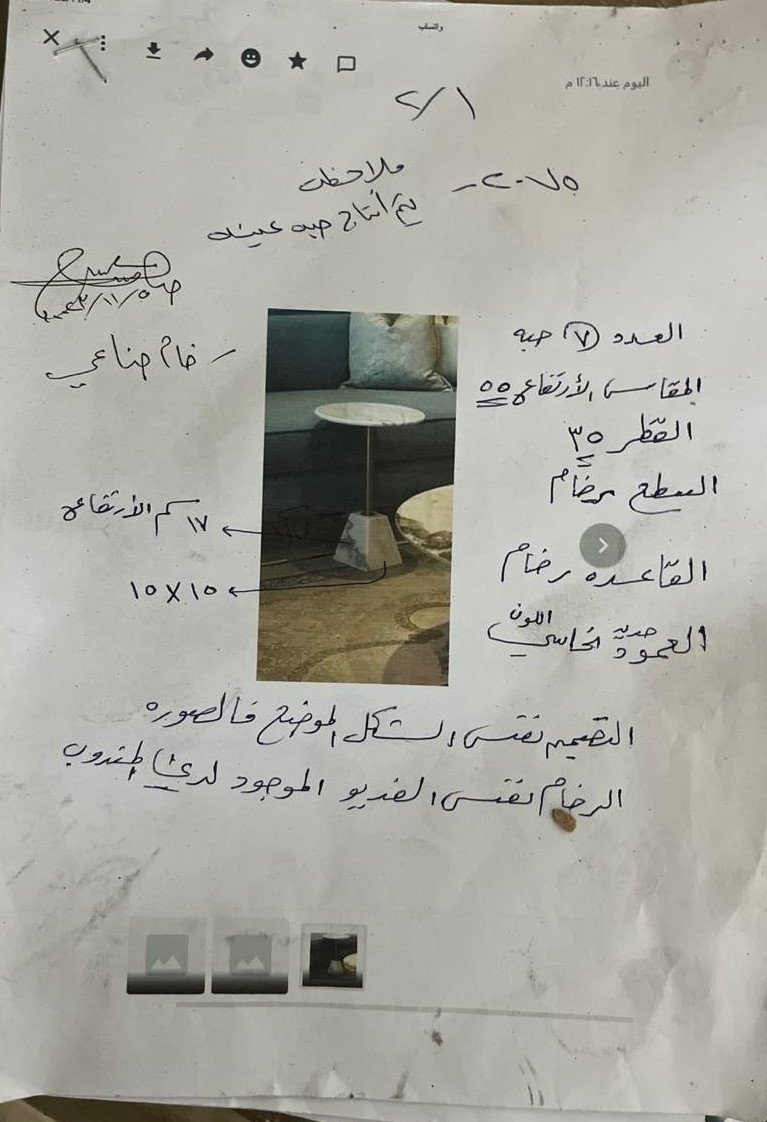 واتساب
اليوم عند ١٢:١٦ م
٢/١
ملاحظه
٢٠٧٥ -
يتم أنتاج حبه عينه
٢٠٢٣/١١/٥
رخام صناعي
العدد (٧) حبه
المقاس الأرتفاع ٥٥
القطر ٣٥
السطح رخام
١٧ سم الأرتفاع
القاعده رخام
١٥ X ١٥
العمود حديد نحاسي اللون
التصميم نفس الشكل الموضح فالصوره
الرخام نفس الفديو الموجود لدى المندوب